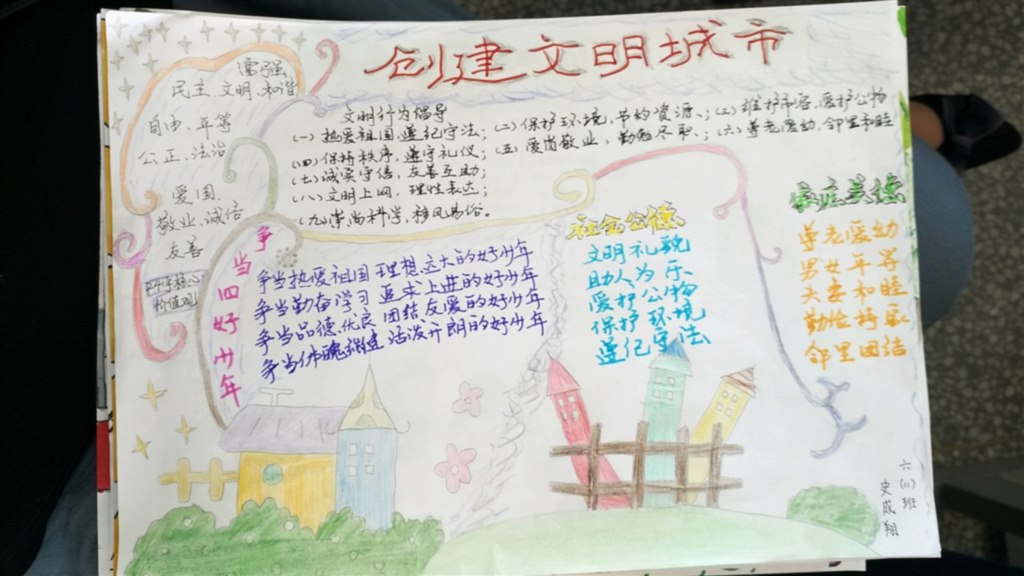 创建文明城市
富强
民主 文明 和谐
自由、平等
公正、法治
爱国、
敬业、诚信
友善
核心
价值观
文明行为倡导
(一) 热爱祖国,遵纪守法;(二) 保护环境,节约资源、;(三) 维护市容,爱护公物
(四) 保持秩序,遵守礼仪;(五) 爱岗敬业,勤勉尽职、;(六) 尊老爱幼,邻里和睦
(七) 诚实守信,友善互助;
(八) 文明上网,理性表达;
(九) 崇尚科学,移风易俗。
争当四好少年
争当热爱祖国 理想远大的好少年
争当勤奋学习 追求上进的好少年
争当品德优良 团结友爱的好少年
争当体魄强健 活泼开朗的好少年
社会公德
文明礼貌
助人为乐
爱护公物
保护环境
遵纪守法
家庭美德
尊老爱幼
男女平等
夫妻和睦
勤俭持家
邻里团结
六(1)班
史成翔